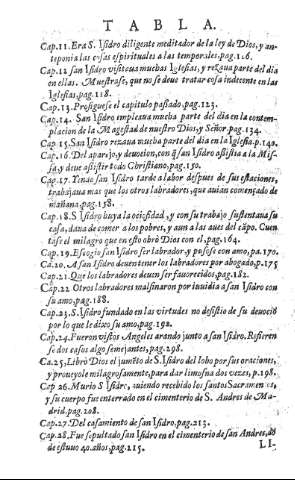 TABLA.
Cap.11. Era S. Isidro diligente meditador de la ley de Dios, y an-
teponia las cosas espirituales a las temporales, pag.116.
Cap.12 san Isidro visitaua muchas Iglesias, y rezaua parte del dia
en ellas. Muestrase, que no se deue tratar cosa indecente en las
Iglesias, pag.118.
Cap.13. Prosiguese el capitulo passado, pag.123.
Cap.14. San Isidro empleaua mucha parte del dia en la contem-
placion de la Magestad de nuestro Dios, y Señor. pag.134.
Cap.15. San Isidro rezaua mucha parte del dia en la Iglesia. p.149.
Cap.16. Del aparejo, y deuocion, con q̃ san Isidro assistia a la Mis-
sa, y deue assistir todo Christiano, pag.150.
Cap.17. Yendo san Isidro tarde a labor despues de sus estaciones,
trabajaua mas que los otros labradores, que auian començado de
mañana, pag.158.
Cap.18. S Isidro huya la ociosidad, y con su trabajo sustentaua su
casa, daua de comer a los pobres, y aun a las aues del cãpo. Cuen
tase el milagro que en esto obrò Dios con el. pag.164.
Cap.19. Escogio san Isidro ser labrador, y pusose con amo, pa.170.
Ca.20. A san Isidro deuen tener los labradores por abogado. p.175
Cap.21. Que los labradores deuen ser fauorecidos, pag.182.
Cap.22 Otros labradores malsinaron por inuidia a san Isidro con
su amo, pag.188.
Cap.23. S. Isidro fundado en las virtudes no desistio de su deuociõ
por lo que le dixo su amo, pag.192.
Cap.24. Fueron vistos Angeles arando junto a san Isidro. Refieren
se dos casos algo semejantes, pag.192.
Ca.25, Librò Dios el jumẽto de S. Isidro del lobo por sus oraciones,
y proueyole milagrosamente, para dar limosna dos vezes, p.198.
Cap 26. Murio S Isidro, auiendo recebido los santos Sacramentos,
y su cuerpo fue enterrado en el cimenterio de S. Andres de Ma-
drid. pag.208.
Cap.27. Del casamiento de san Isidro. pag.213.
Cap.28. Fue sepultado san Isidro en el cimenterio de san Andres, dõ
de estuuo 40. años, pag.215.
LI-